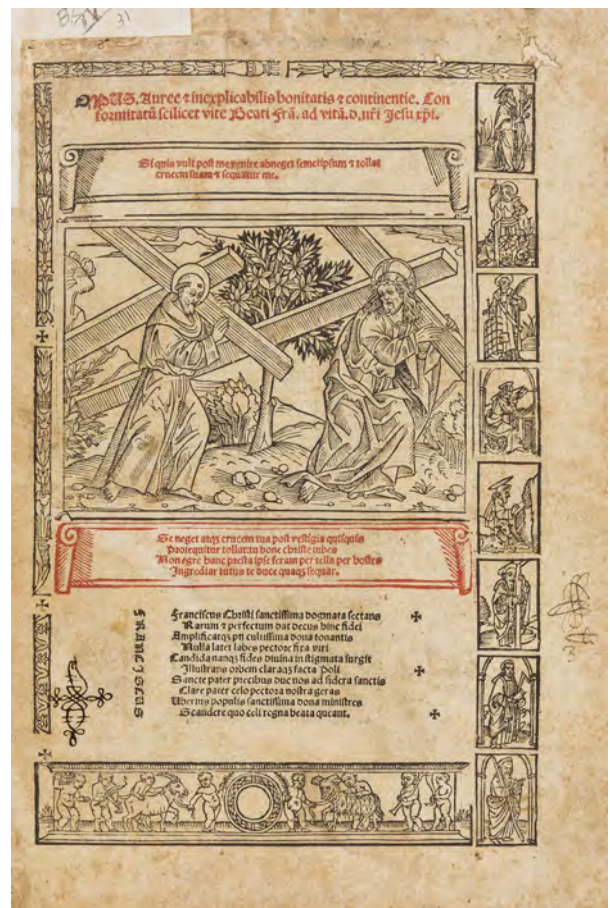 31
OPUS. Auree ⁊ inexplicabilis bonitatis ⁊ continentie. Con
formitatū scilicet vite Beati Frā. ad vitā. d. nr̄i Jesu xp̄i.
Si quis vult post me venire abneget semetipsum ⁊ tollat
crucem suam ⁊ sequatur me.
Se neget atqꝫ crucem tua post vestigia quisquis
Prosequitur tollat tu bone christe iubes
Non egre hanc presta ipse feram per tella per hostes
Ingrediar tutus te duce quaqꝫ sequar.
FRANCISCUS
Franciscus Christi sanctissima dogmata sectans
Rarum ⁊ perfectum dat decus hinc fidei
Amplificatqꝫ pn cultissima dona tonantis
Nulla latet labes pectore fixa viri
Candida nanqꝫ fides diuina in stigmata surgit
Illustrans orbem claraqꝫ facta Poli
Sancte pater precibus duc nos ad sidera sanctis
Clare pater celo pectora nostra geras
Uberius populis sanctissima dona ministres
Scandere quo celi regna beata queant.